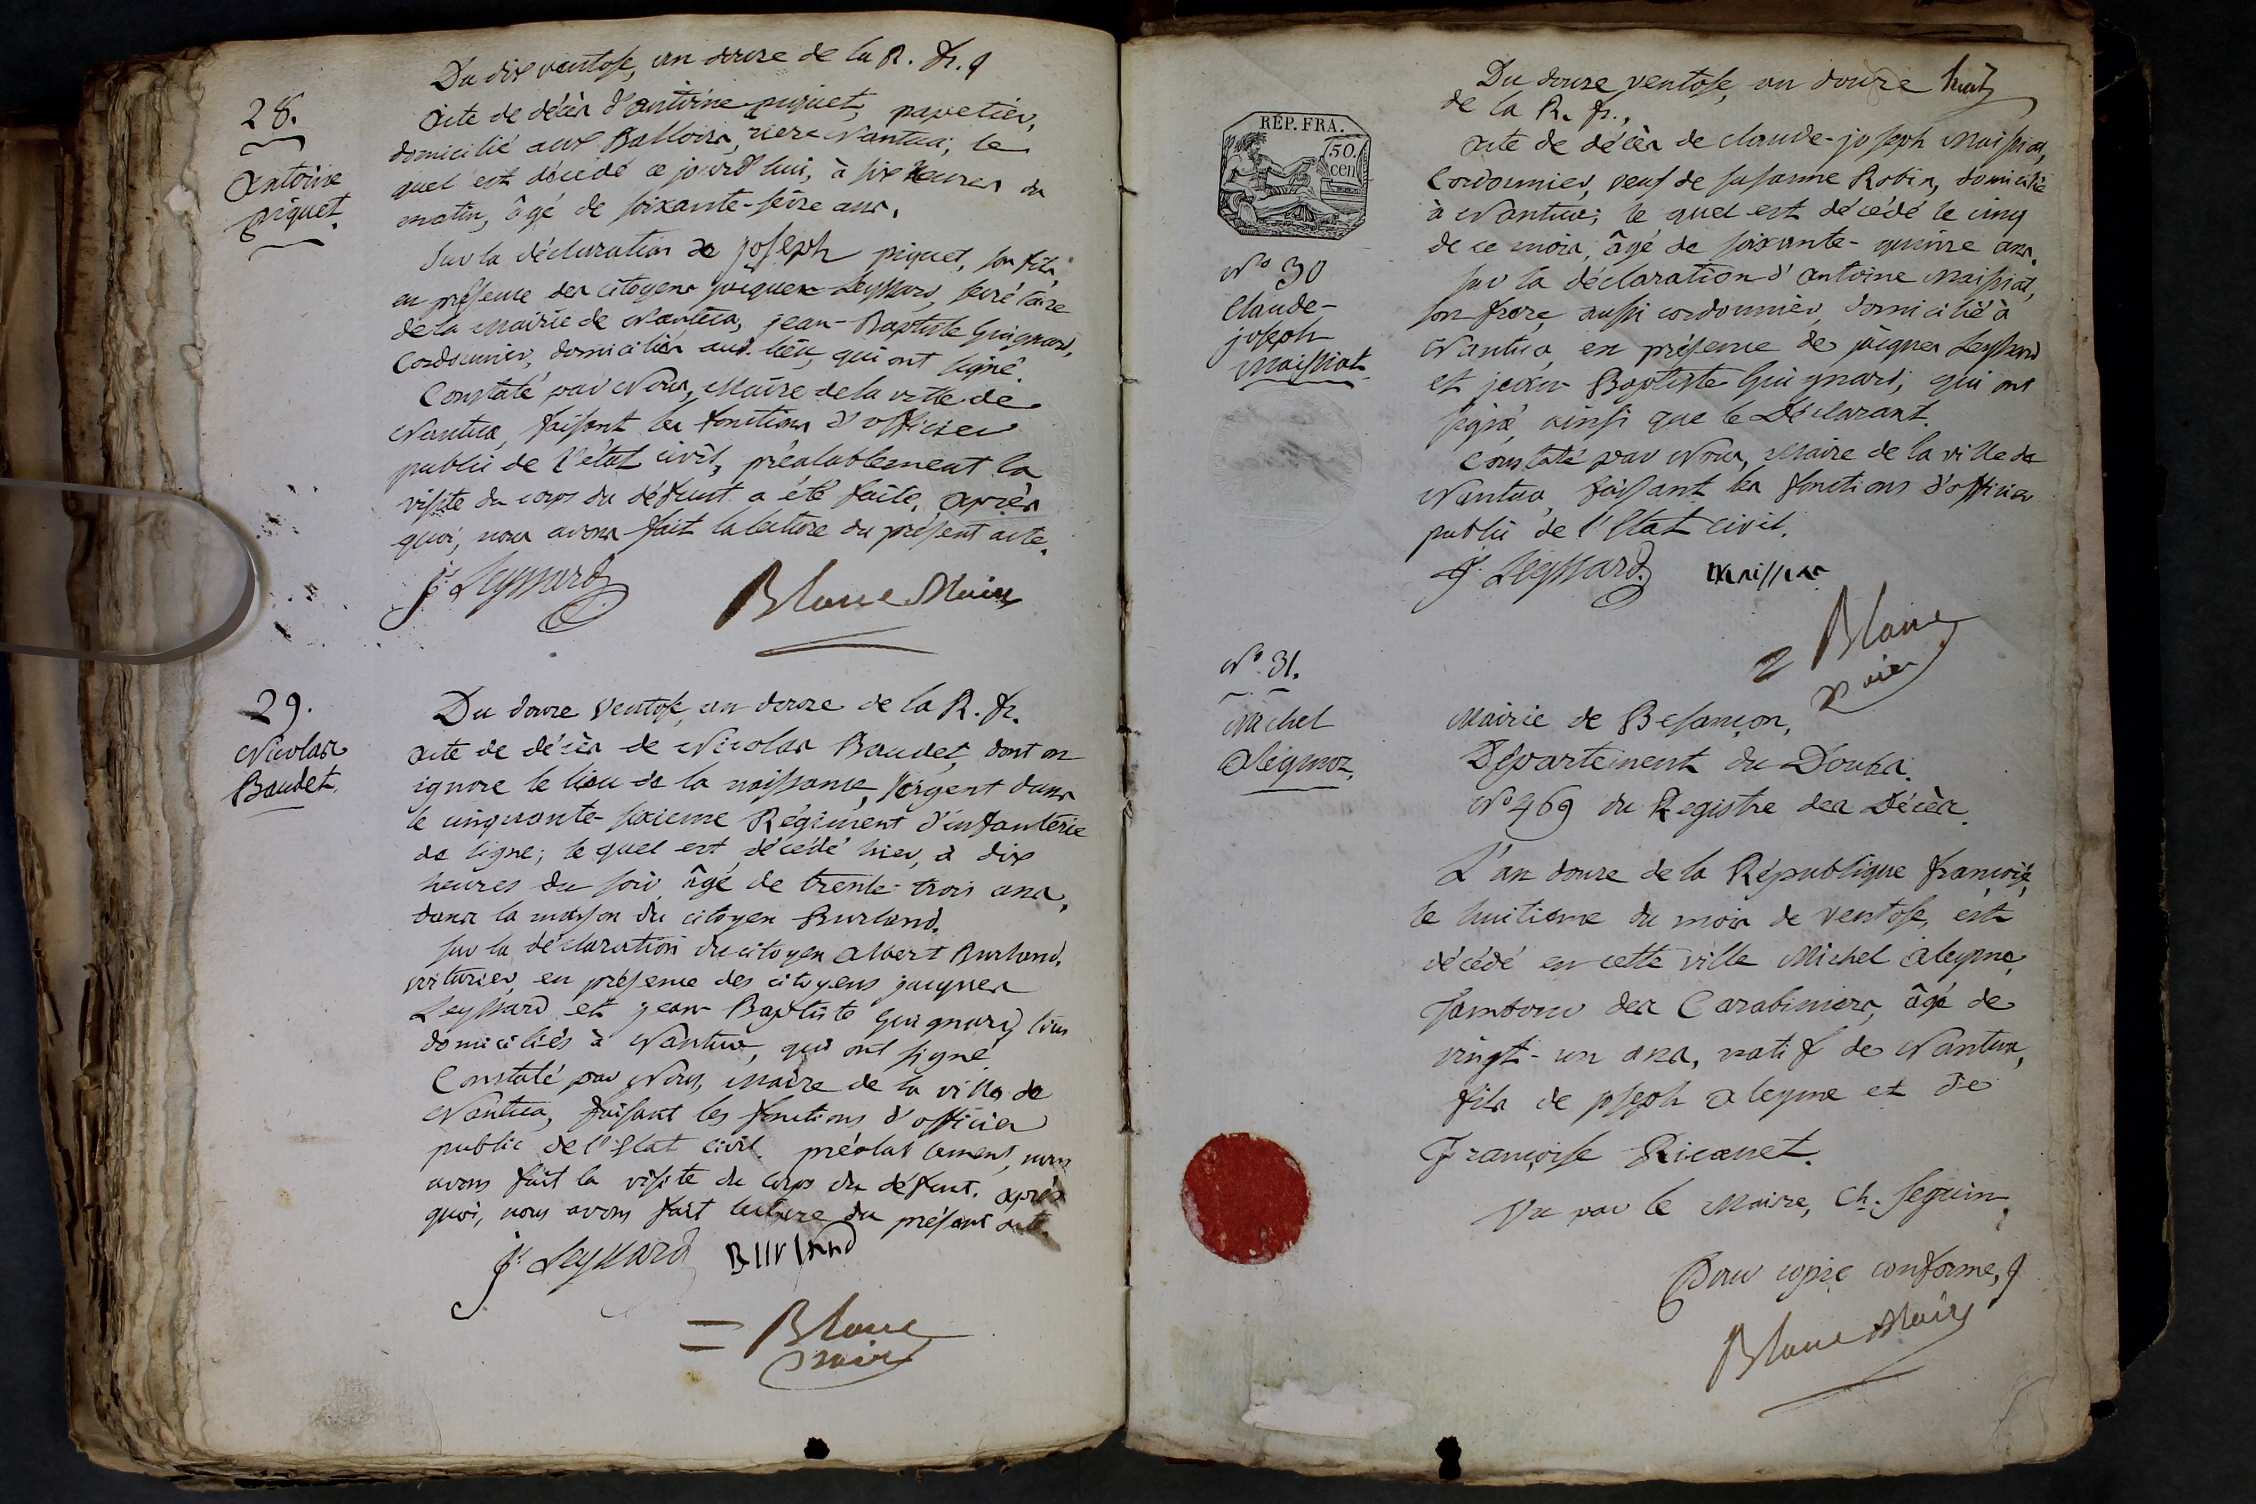 Du dix ventose, an douze de la R. fr.
28.
Acte de décès d'antoine piquet, papetier,
domicilié aux Battoirs, riere Nantua; le
quel est décédé ce jourd'hui, à six heures du
matin, âgé de soixante-seize ans.
Antoine
piquet.
Sur la déclaration de joseph piquet, son fils
en présence des citoyens jacques Leyssard, secrétaire
de la Mairie de Nantua, jean-Baptiste Guignard,
Cordonnier, domiciliés aud. lieu, qui ont signé.
Constaté par Nous, Maire de la ville de
Nantua, faisant les fonctions d'officier
public de l'état civil, préalablement la
visite du corps du défunt a été faite, après
quoi, nous avons fait la lecture du présent acte.
J. Leyssard
Blanc Maire
29.
Nicolas
Baudet.
Du douze ventose, an douze de la R. fr.
Acte de décès de Nicolas Baudet, dont on
ignore le lieu de la naissance, sergent dans
le cinquante-sixieme Régiment d'infanterie
de ligne; le quel est décédé hier, à dix
heures du soir, âgé de trente-trois ans,
dans la maison du citoyen Burland.
Sur la déclaration du citoyen Albert Burland,
voiturier, en présence des citoyens jacques
Leyssard et jean Baptiste Guignard, tous
domiciliés à Nantua, qui ont signé.
Constaté par Nous, Maire de la ville de
Nantua, faisant les fonctions d'officier
public de l'Etat civil. préalablement, nous
avons fait la visite du corps du défunt. après
quoi, nous avons fait lecture du présent acte.
J. Leyssard Burland
Blanc
Maire
huit
Du douze ventose, an douze
de la R. fr.,
RÉP. FRA.
50.
cen
Acte de décès de claude-joseph Maissiat,
Cordonnier, veuf de susanne Robin, domicilié
à Nantua; le quel est décédé le cinq
de ce mois, âgé de soixante-quinze ans.
No 30
Claude-
joseph
Maissiat
Sur la déclaration d'Antoine Maissiat,
son frere, aussi cordonnier, domicilié à
Nantua, en présence de jacques Leyssard
et jean-Baptiste Guignard, qui ont
signé, ainsi que le Déclarant.
Constaté par Nous, Maire de la ville de
Nantua, faisant les fonctions d'officier
public de l'Etat civil.
J. Leyssard Maissiat
Blanc
Maire
No 31.
Michel
Alégmoz.
Mairie de Besançon,
Département du Doubs.
No 469 du Registre des Décès.
L'an douze de la République française,
le huitieme du mois de ventose, est
décédé en cette ville Michel Aleyme,
Tambour des Carabiniers, âgé de
vingt-un ans, natif de Nantua,
fils de joseph Aleyme et de
Françoise Ricanet.
Vu par le Maire, Ch. Seguin.
Pour copie conforme,
Blanc Maire